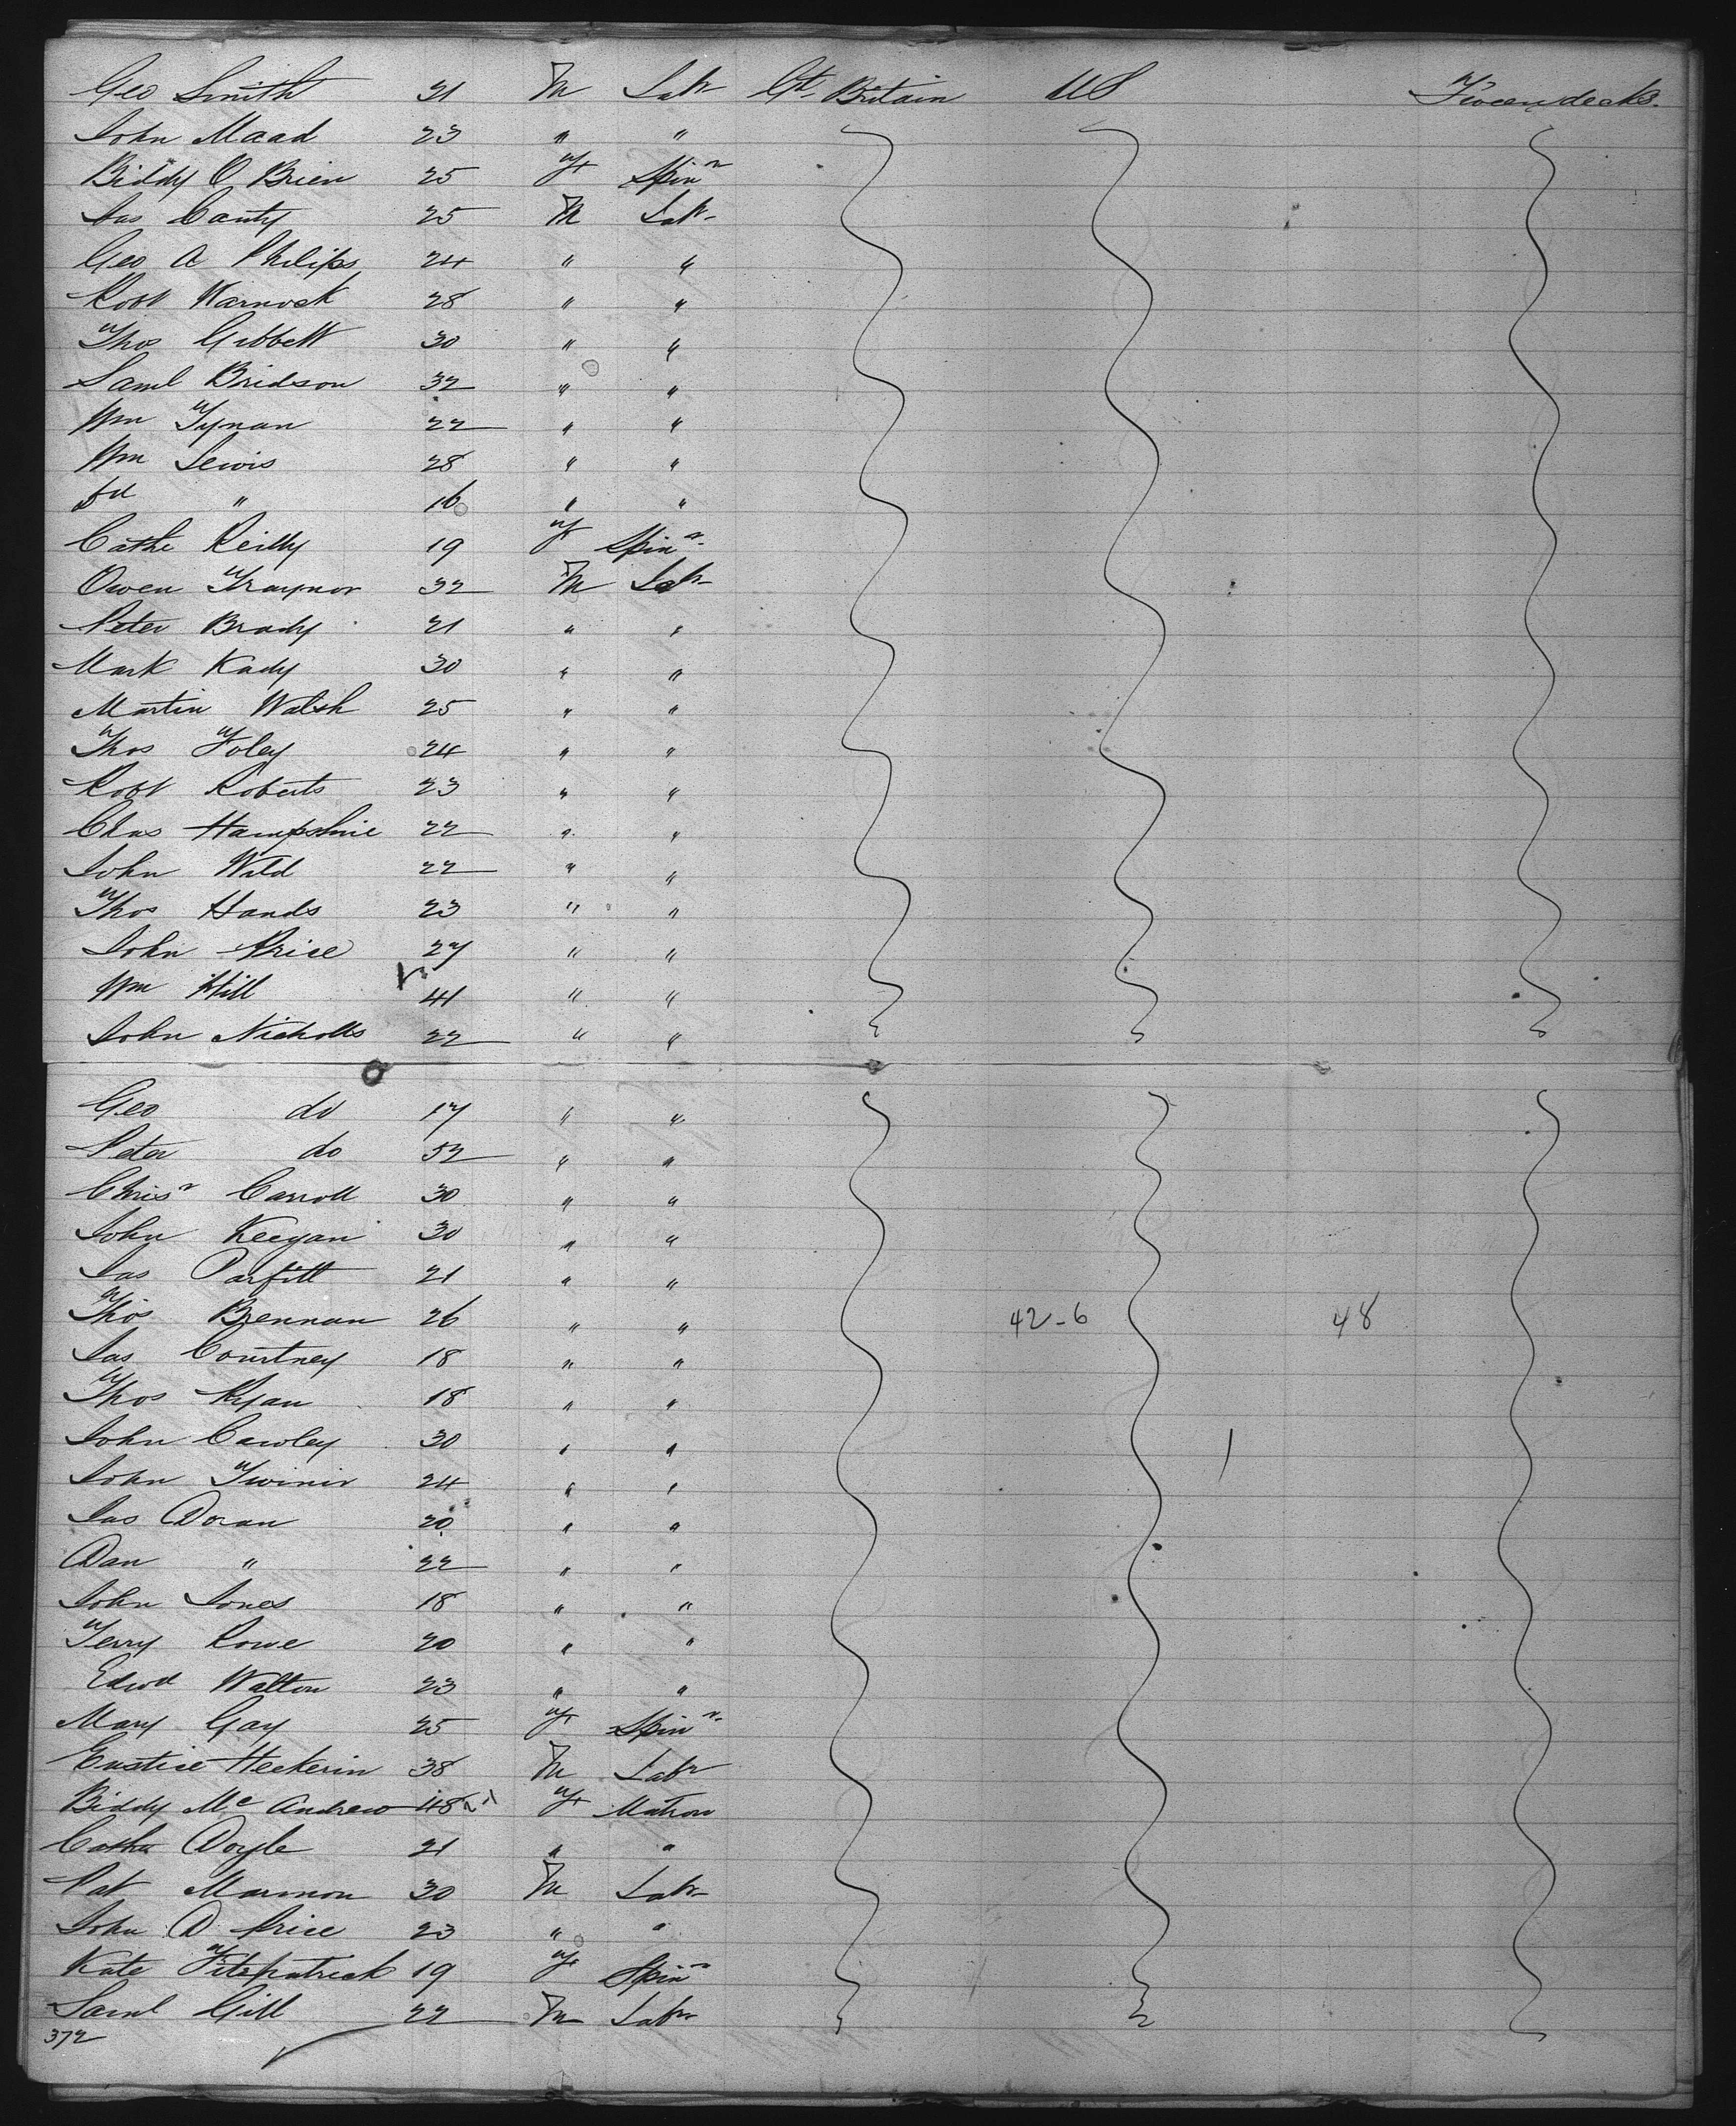 Geo Smith 21 M Labr Gt. Britain US Tween decks.
John Maad 23 " "
Biddy O Brien 25 F Spinr
Jas Canty 25 M Labr
Geo A Philips 24 " "
Robt Warnock 28 " "
Thos Gibbett 30 " "
Saml Bridson 32 " "
Wm Tynan 22 " "
Wm Lewis 28 " "
" 16 " "
Cathe Reilly 19 F Spinr
Owen Traynor 32 M Labr
Peter Brady 21 " "
Mark Kady 30 " "
Martin Walsh 25 " "
Thos Foley 24 " "
Robt Roberts 23 " "
Chas Hampshire 22 " "
John Wild 22 " "
Thos Hands 23 " "
John Price 27 " "
Wm Hill 41 " "
John Nicholls 22 " "
Geo do 17 " "
Peter do 52 " "
Chrisr Carroll 30 " "
John Keegan 30 " "
Jas Parfitt 21 " "
Thos Brennan 26 " " 42-6 48
Jas Courtney 18 " "
Thos Ryan 18 " "
John Cawley 30 " "
John 24 " "
Jas Doran 20 " "
Dan " 22 " "
John Jones 18 " "
Terry Rowe 20 " "
Edwd Walton 23 " "
Mary Gay 25 F Spinr
Eustice Heckerin 38 M Labr
Biddy Mc Andrew 48 F Matron
Cathe Doyle 21 " "
Pat Marmon 30 M Labr
John D Price 23 " "
Kate Fitzpatrick 19 F Spinr
Saml Gill 22 M Labr
372